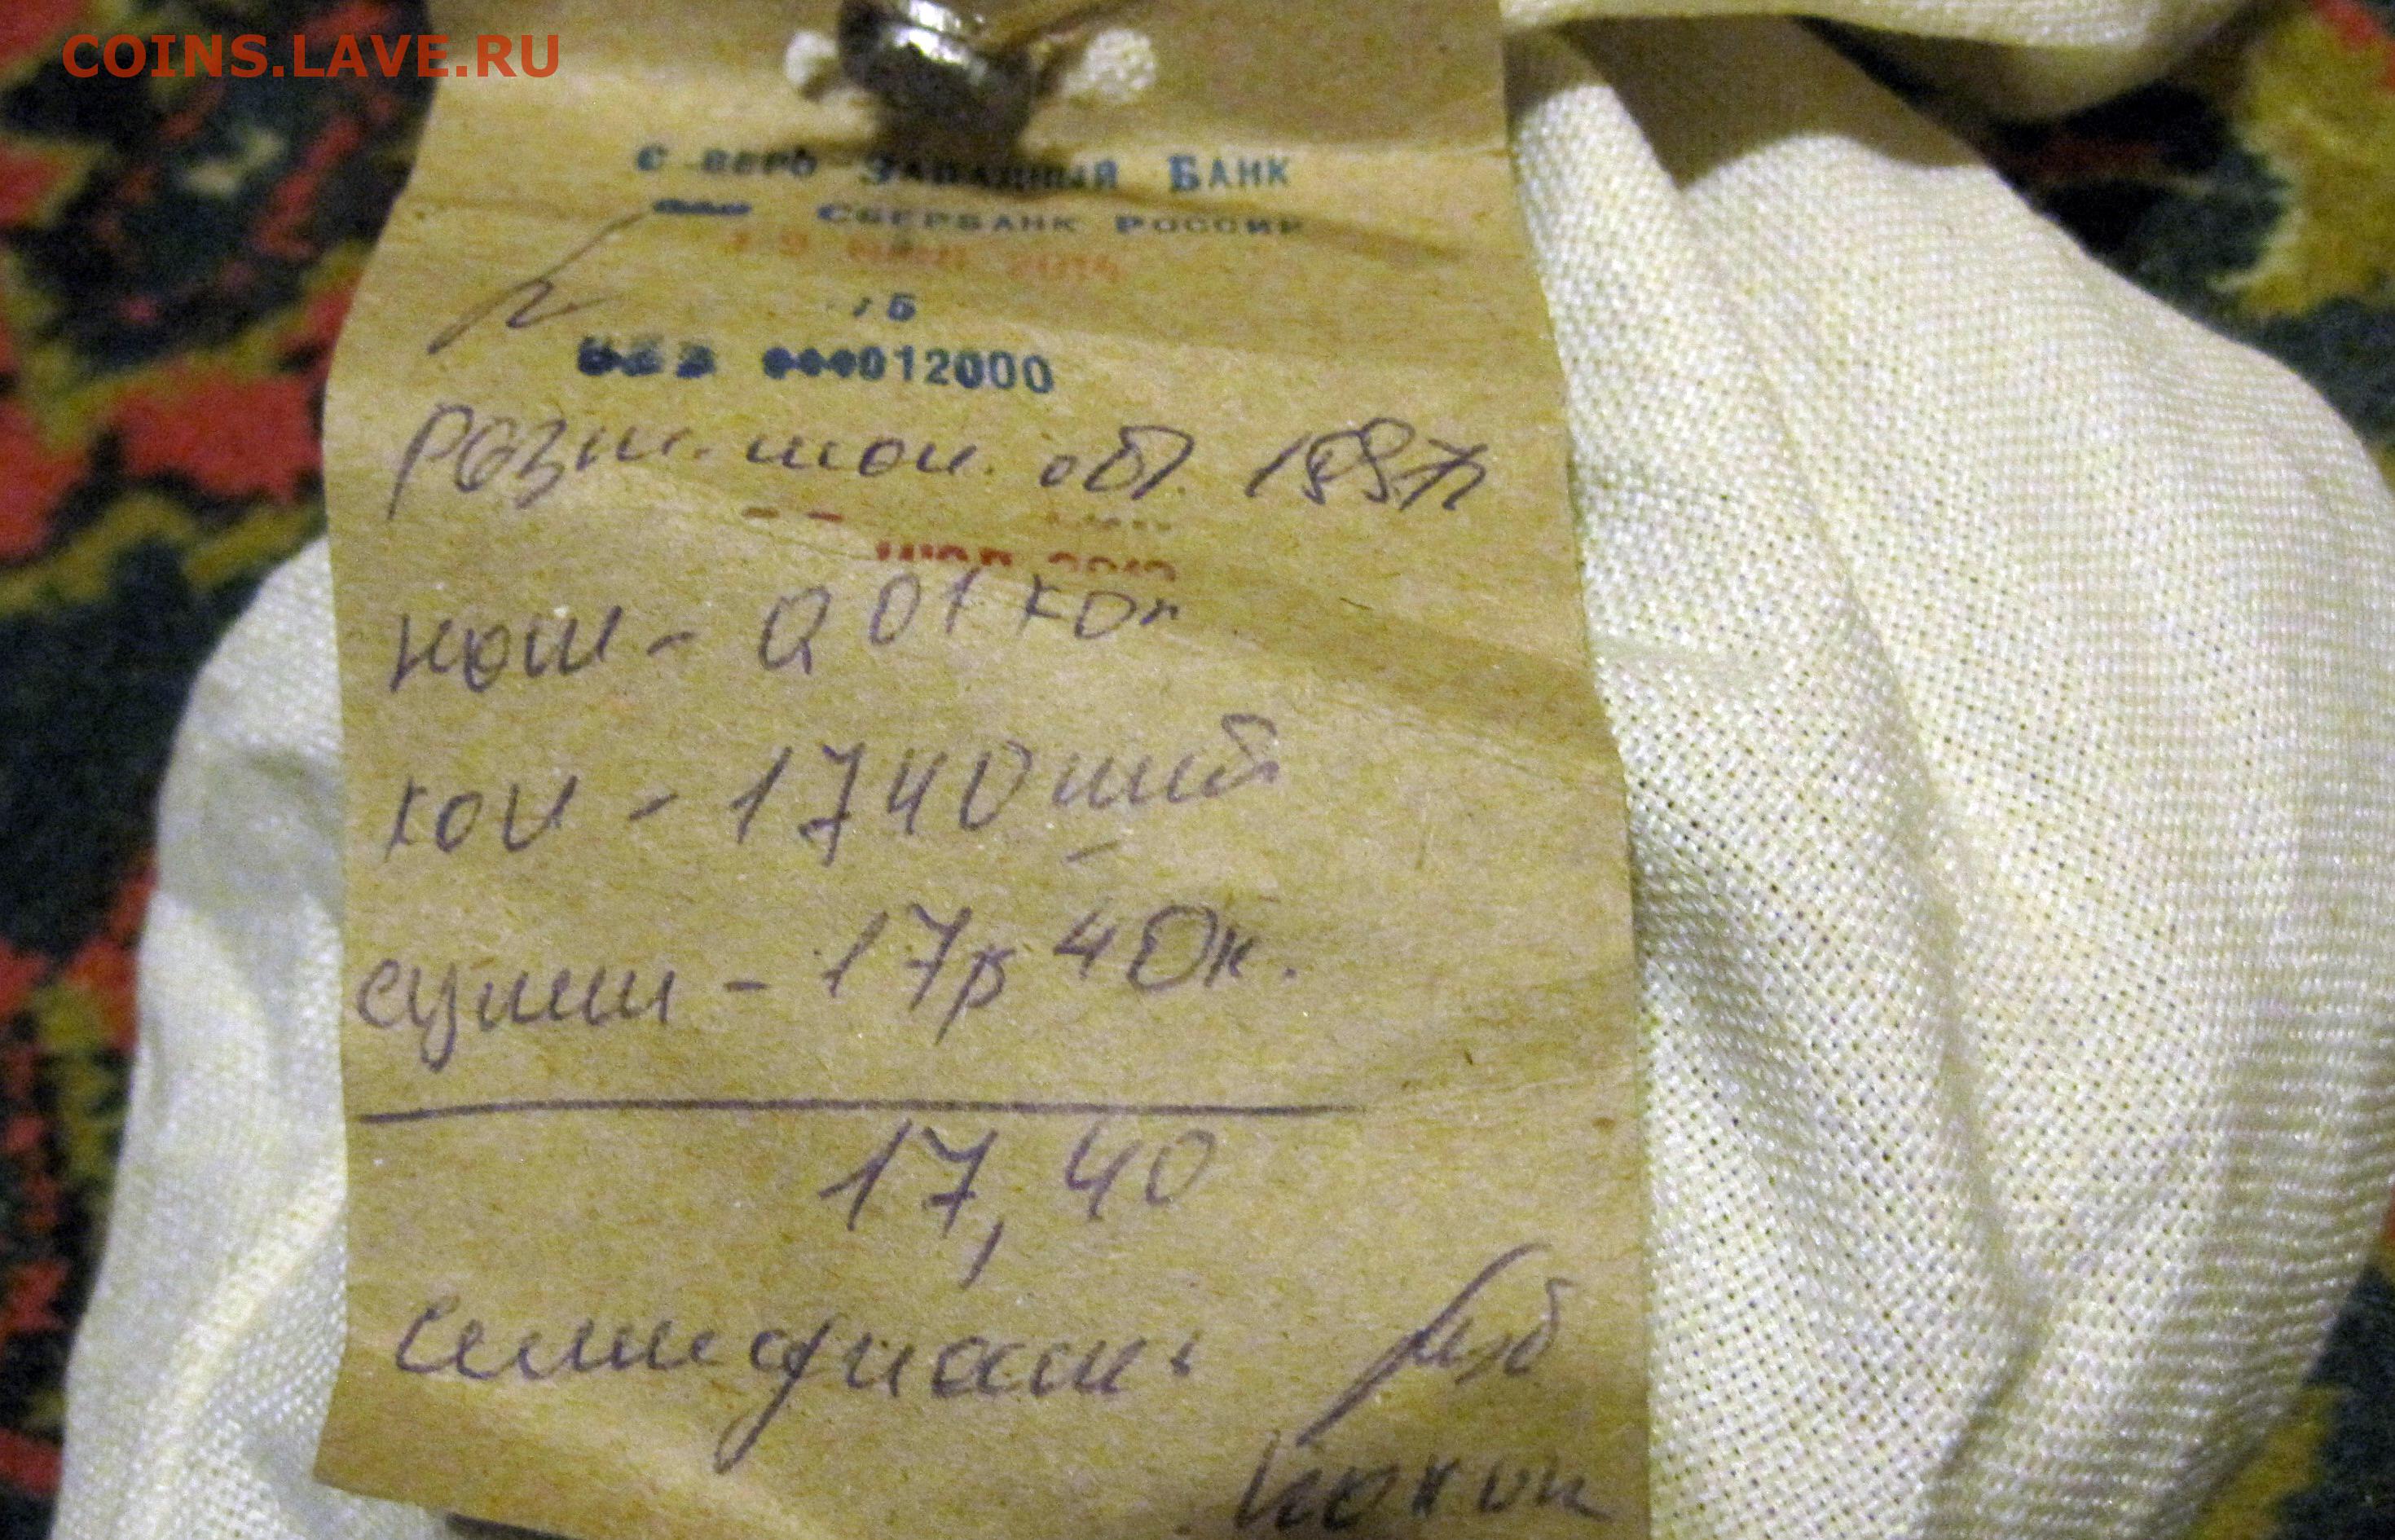 COINS.LAVE.RU
С ВЕРО-ЗАПАДНЫЙ БАНК
ОАО СБЕРБАНК РОССИИ
2014
5
012000
разм. мон. об. 1997г
ном - 0,01 коп
кол - 1740 шт
сумм - 17р 40к.
17,40
Семнадцать руб
40 коп